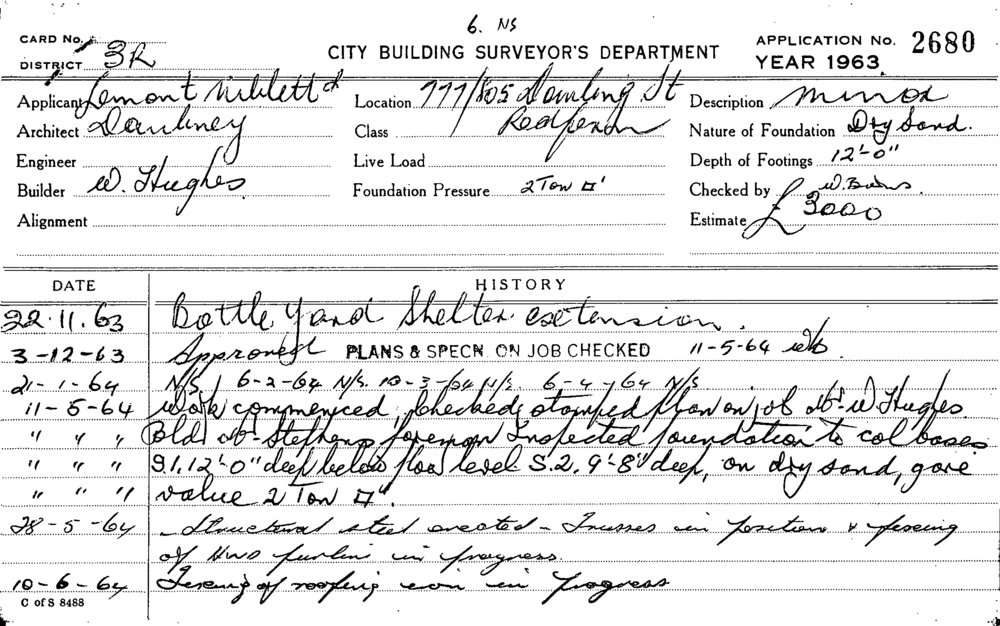 6. NS
CARD No.
DISTRICT 3R
CITY BUILDING SURVEYOR'S DEPARTMENT
APPLICATION No. 2680
YEAR 1963
Applicant Lemont Niblett &
Location 777/805 Dowling St
Description Minor
Architect Daubney
Class Redfern
Nature of Foundation Dry Sand.
Engineer
Live Load
Depth of Footings 12'-0"
Builder W. Hughes.
Foundation Pressure 2 Ton □'
Checked by W. Burns.
Alignment
Estimate £3000
DATE HISTORY
22.11.63 Bottle Yard Shelter extension.
3-12-63 Approved PLANS & SPECN. ON JOB CHECKED 11-5-64 WB.
21-1-64 N/S / 6-2-64 N/S. 10-3-64 N/S. 6-4-64 N/S
11-5-64 Work commenced, checked, stamped plan on job Mr. W Hughes
" " " Bld. Mr. Stephens foreman Inspected foundation to col bases
" " " S.1. 12'-0" deep below floor level. S.2. 9'-8" deep, on dry sand, gave
" " " value 2 Ton □".
28-5-64 - Structural steel erected - Trusses in position & fixing
of HWD purlins in progress.
10-6-64 Fixing of roofing iron in progress
C of S 8488